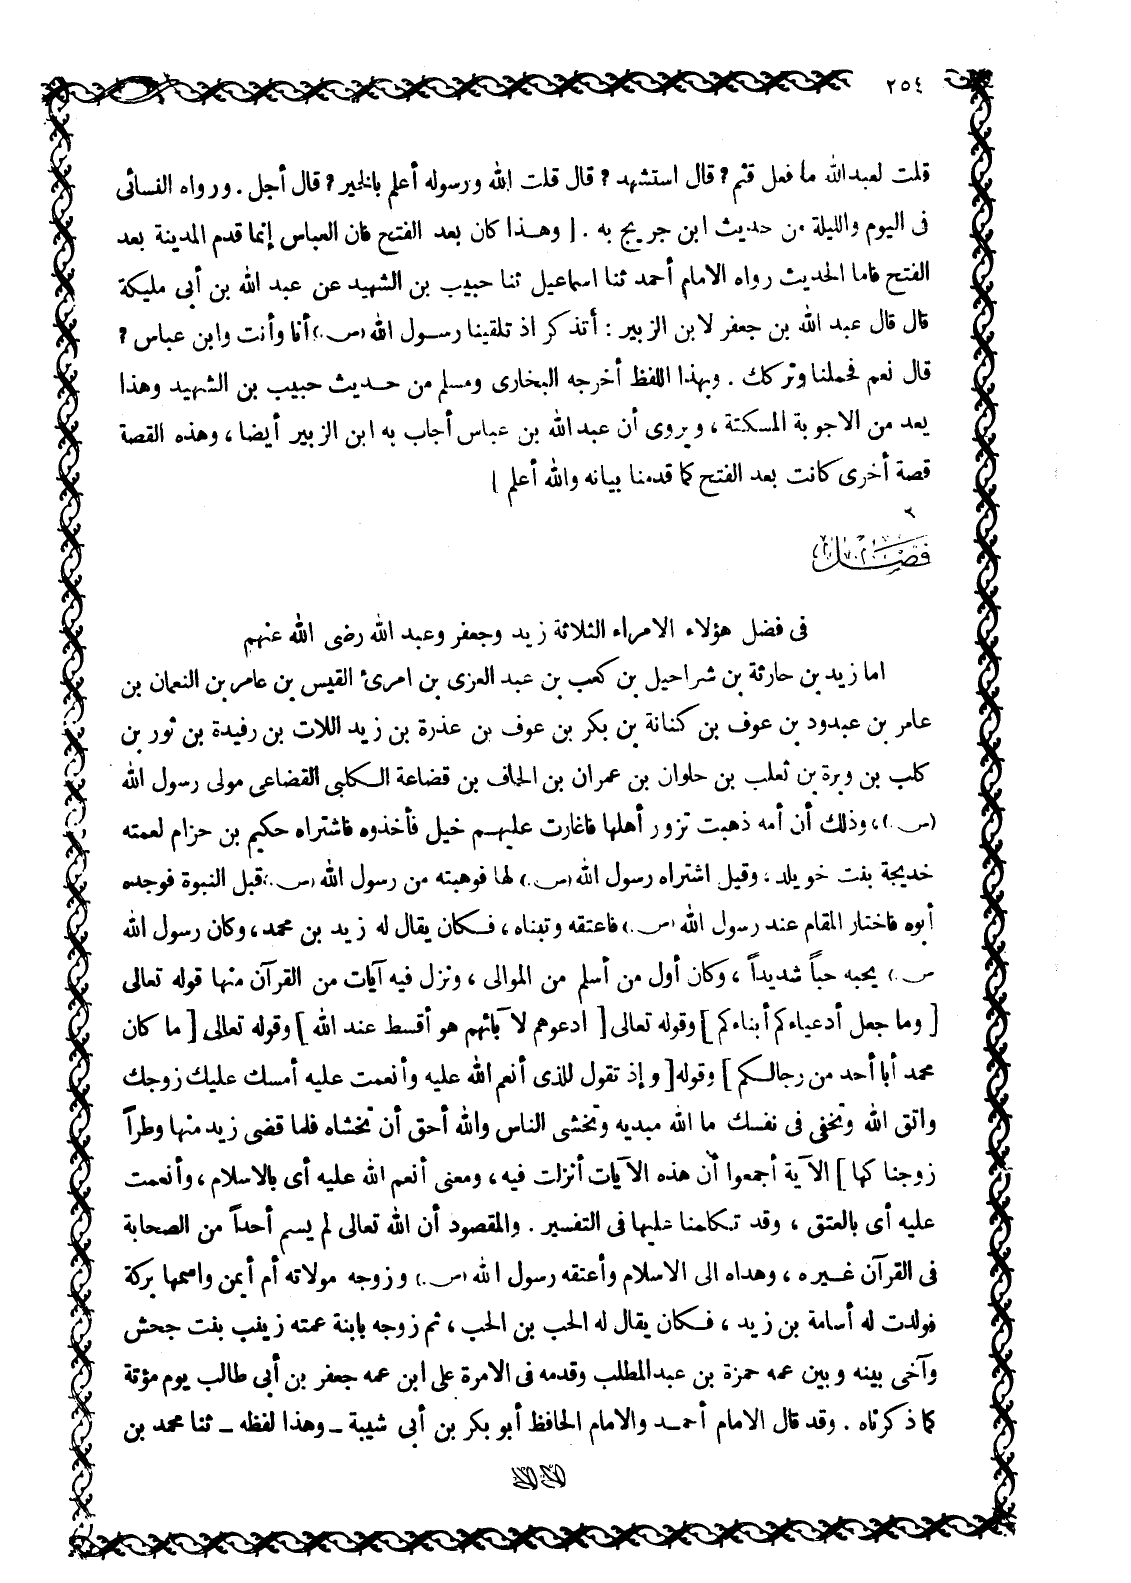 ٢٥٤
قلت لعبدالله ما فعل قثم ؟ قال استشهد ؟ قال قلت الله ورسوله أعلم بالخير ؟ قال أجل . ورواه النسائى
فى اليوم والليلة من حديث ابن جريج به . [ وهــذا كان بعد الفتح فان العباس إنما قدم المدينة بعد
الفتح فاما الحديث رواه الامام أحمد ثنا اسماعيل ثنا حبيب بن الشهيد عن عبد الله بن أبى مليكة
قال قال عبد الله بن جعفر لابن الزبير : أتذكر اذ تلقينا رسول الله (س.) أنا وأنت وابن عباس ؟
قال نعم فحملنا وتركك . وبهذا اللفظ أخرجه البخارى ومسلم من حــديث حبيب بن الشهيد وهذا
يعد من الاجوبة المسكتة ، ويروى أن عبد الله بن عباس أجاب به ابن الزبير أيضا ، وهذه القصة
قصة أخرى كانت بعد الفتح كما قدمنا بيانه والله أعلم ]
فصل
فى فضل هؤلاء الامراء الثلاثة زيد وجعفر وعبد الله رضى الله عنهم
اما زيد بن حارثة بن شراحيل بن كعب بن عبد العزى بن امرئ القيس بن عامر بن النعمان بن
عامر بن عبدود بن عوف بن كنانة بن بكر بن عوف بن عذرة بن زيد اللات بن رفيدة بن ثور بن
كلب بن وبرة بن ثعلب بن حلوان بن عمران بن الحاف بن قضاعة الـكلبى القضاعى مولى رسول الله
(س.) ، وذلك أن أمه ذهبت تزور أهلها فاغارت عليهــم خيل فأخذوه فاشتراه حكيم بن حزام لعمته
خديجة بنت خويلد ، وقيل اشتراه رسول الله (س.) لها فوهبته من رسول الله (س.) قبل النبوة فوجده
أبوه فاختار المقام عند رسول الله (س.) فاعتقه وتبناه ، فــكان يقال له زيد بن محمد ، وكان رسول الله
س.) يحبه حباً شديداً ، وكان أول من أسلم من الموالى ، ونزل فيه آيات من القرآن منها قوله تعالى
[ وما جعل أدعياءكم أبناءكم ] وقوله تعالى [ ادعوهم لآبائهم هو أقسط عند الله ] وقوله تعالى [ ما كان
محمد أبا أحد من رجالــكم ] وقوله [ وإذ تقول للذى أنعم الله عليه وأنعمت عليه أمسك عليك زوجك
واتق الله وتخفى فى نفسك ما الله مبديه وتخشى الناس والله أحق أن تخشاه فلما قضى زيد منها وطراً
زوجنا كها ] الآية أجمعوا أن هذه الآيات أنزلت فيه ، ومعنى أنعم الله عليه أى بالاسلام ، وأنعمت
عليه أى بالعتق ، وقد تــكلمنا عليها فى التفسير . والمقصود أن الله تعالى لم يسم أحداً من الصحابة
فى القرآن غــيره ، وهداه الى الاسلام وأعتقه رسول الله (س.) وزوجه مولاته أم أيمن واسمها بركة
فولدت له أسامة بن زيد ، فــكان يقال له الحب بن الحب ، ثم زوجه بابنة عمته زينب بنت جحش
وآخى بينه وبين عمه حمزة بن عبدالمطلب وقدمه فى الامرة على ابن عمه جعفر بن أبى طالب يوم مؤتة
كما ذكرناه . وقد قال الامام أحمــد والامام الحافظ أبو بكر بن أبى شيبة ـ وهذا لفظه ـ ثنا محمد بن